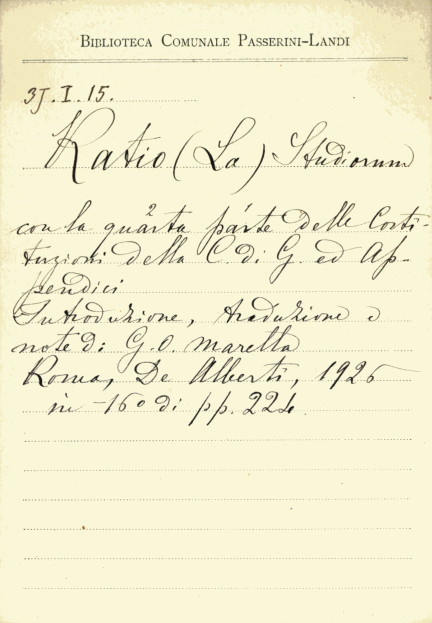 BIBLIOTECA COMUNALE PASSERINI-LANDI
3J.I.15.
Ratio (La) Studiorum
con la quarta parte delle Costi-
tuzioni della C. di G. ed Ap-
pendici
Introduzione, traduzione e
note di G. O. Marella
Roma, De Alberti, 1926
in -16º di pp. 224